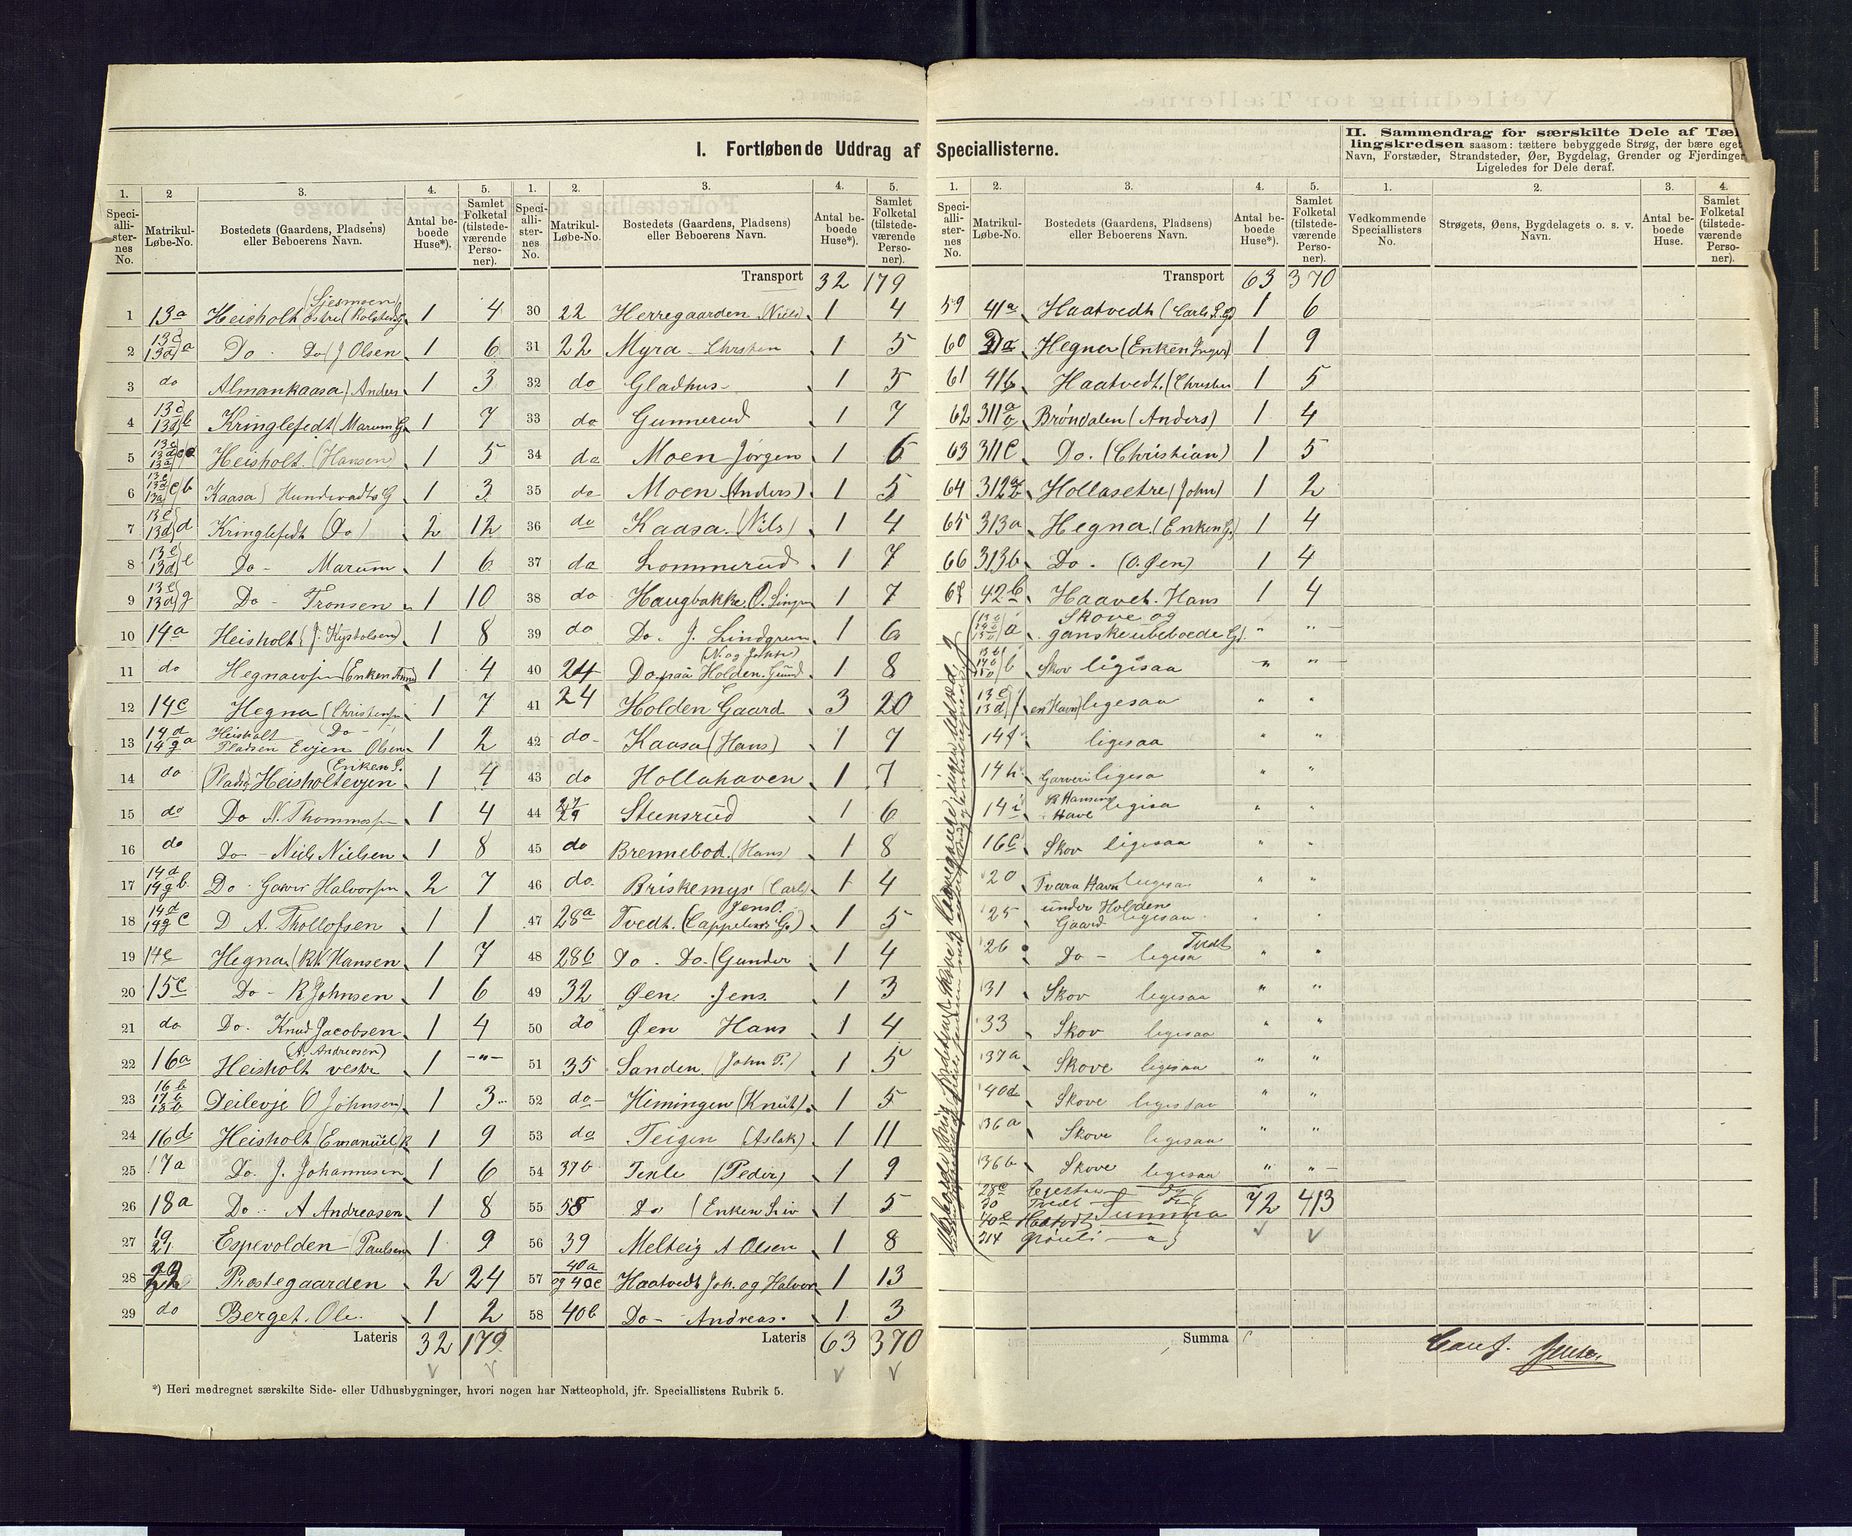 I. Fortløbende Uddrag af Speciallisterne.
II. Sammendrag for særskilte Dele af Tællingskredsen saasom: tættere bebyggede Strøg, der bære eget
Navn, Forstæder, Strandsteder, Øer, Bygdelag, Grender og Fjerdinger.
Ligeledes for Dele deraf.
1. 2 3. 4. 5.
Speciallisternes No. Matrikul-Løbe-No. Bostedets (Gaardens, Pladsens) eller Beboerens Navn. Antal beboede Huse*). Samlet Folketal (tilstedeværende Personer).
1 13a Heisholt østre 1 4
2 Do. Do (J Olsen 1 6
3 do Almankaasa (Anders 1 3
4 Kringlefedt (Marum G. 1 7
5 Heisholt (Hansen) 1 5
6 Kaasa 1 3
7 Kringlefedt (Do) 2 12
8 Do - Marum 1 6
9 Do - Tronsen 1 10
10 14a Heisholt 1 8
11 do (Enken 1 4
12 14c Hegna 1 7
13 Heisholt Do Pladsen Evjen Olsen 1 2
14 do Heisholtevjen 1 4
15 do Do N. 1 4
16 do Do - Niels Nielsen 1 8
17 Do. Halvorsen 2 7
18 D A. Thollofsen 1 1
19 14e Hegna Hansen 1 7
20 15c Do - R Johnsen 1 6
21 do Do. Knud Jacobsen 1 4
22 16a Heisholt vestre (A. Andreasen) 1 -"-
23 Deilevje O Johnsen) 1 3
24 16d Heisholt (Emanuel 1 9
25 17a Do. J. Johannesen 1 6
26 18a Do - A Andreasen 1 8
27 19 21 Espevolden (Paulsen 1 9
28 Prestegaarden 2 24
29 do Berget. Ole. 1 2
Lateris 32 179
*) Heri medregnet særskilte Side- eller Udhusbygninger, hvori nogen har Natteophold, jfr. Speciallistens Rubrik 5.
1. 2. 3. 4. 5.
Speciallisternes No. Matrikul-Løbe-No. Bostedets (Gaardens, Pladsens) eller Beboerens Navn. Antal beboede Huse*). Samlet Folketal (tilstedeværende Personer).
Transport 32 179
30 22 Herregaarden (Niels) 1 4
31 22 Myra 1 5
32 do Gladhus 1 5
33 do Gunnerud 1 7
34 do Moen Jørgen 1 6
35 do Moen (Anders) 1 5
36 do Kaasa. (Nils) 1 4
37 do Lommerud 1 7
38 do Haugbakke O. 1 7
39 do Do. J. Lindgren 1 6
40 24 Do paa Holden 1 8
41 24 Holden Gaard 3 20
42 do Kaasa (Hans) 1 7
43 do Hollahaven 1 7
44 Steensrud 1 6
45 do Brennebod. (Hans) 1 8
46 do Briskemyr (Carl) 1 4
47 28a Tvedt. (Cappelens G.) Jens O. 1 5
48 28b Do. Do. (Gunder 1 4
49 32 Øen Jens. 1 3
50 do Øen Hans 1 4
51 35 Sanden. (John P.) 1 5
52 do Himingen (Knut). 1 5
53 do Teigen (Aslak) 1 11
54 37b (Peder) 1 9
55 58 Do (Enken Siv 1 5
56 39 Melteig A Olsen 1 8
57 40a og 40c Haatvedt Joh. og Halvor 1 13
58 40b Do - Andreas. 1 3
Lateris 63 370
1. 2. 3. 4. 5.
Speciallisternes No. Matrikul-Løbe-No. Bostedets (Gaardens, Pladsens) eller Beboerens Navn. Antal beboede Huse*). Samlet Folketal (tilstedeværende Personer).
Transport 63 370
59 41a Haatvedt (Carls 1 6
60 Hegna (Enken Inger) 1 9
61 41b Haatvedt. (Christen 1 5
62 311 Brøndalen (Anders) 1 4
63 311c Do. (Christian) 1 5
64 312 Hollasetre (John) 1 2
65 313a Hegna. (Enken G.) 1 4
66 313b Do. (O. Øen) 1 4
67 42b Hans 1 4
Skove og ganske ubeboede Gd. " "
Skov ligesaa " "
ligesaa " "
14f ligesaa " "
14h Garveri ligesa " "
14i R Hansens Have ligesaa " "
16c Skov ligesaa " "
20 Tvara ligesaa " "
25 under Holden Gaard ligesaa " "
26 Do - Tvedt ligesa " "
31 Skov ligesaa " "
33 Skov ligesaa " "
37a Skove ligesaa " "
40d Skove ligesaa " "
36a Skove ligesaa " "
36b Skove ligesaa " "
28c
30 Tvedt
40e Haatvedt Summa 72 413
314 Grønli
Summa
1. 2. 3. 4.
Vedkommende Speciallisters No. Strøgets, Øens, Bygdelagets o. s. v. Navn. Antal beboede Huse. Samlet Folketal (tilstedeværende Personer).